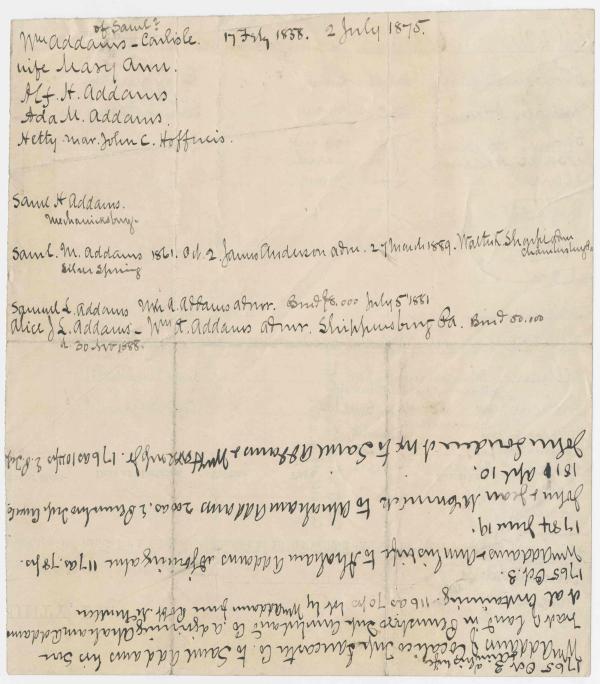 of Saml
Wm Addams - Carlisle. 17 Feby 1858. 2 July 1875.
wife Mary Ann.
Alf. H. Addams
Ada M. Addams.
Hetty mar. John C. Hoffneis.
Saml H Addams.
Mechanicksburg.
Saml. M. Addams 1861. Oct. 2. James Anderson admr. 27 March 1889. Walter K. Sharpe adm
Silver Spring Chambersburg Pa
Samuel L. Addams Wm A. Addams admr. Bond $8.000 July 5, 1881
Alice J L. Addams - Wm A. Addams admr. Shippensburg Pa. Bond 50.000
d. 30 Nov 1888.
1765 Oct 2
Wm Addams of Cocalico Twp Lancaster Co. to Saml Addams his son
tract of land in Pennsboro Twp Cumberland Co. adjoining Abraham Addams
et al containing 116 as 70 ps
1765 Oct. 3.
Wm Addams & Ann his wife to Abraham Addams adjoining above 117 as. 78 ps.
1784 June 19.
John & Jean McCormick to Abraham Addams 200 as. E. Pennsboro Twp Cumb
1810 Apl. 10.
John Louden to Saml Addams &